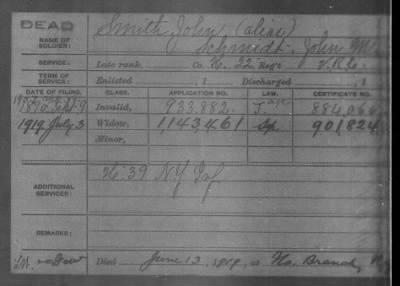 DEAD
NAME OF SOLDIER: Smith John, (alias)
Schmidt, John M
SERVICE: Late rank, Co. K, 22 Reg't V.R.C.
TERM OF SERVICE: Enlisted , 1 Discharged , 1
DATE OF FILING. CLASS. APPLICATION NO. LAW. CERTIFICATE NO.
Sept. 9 Invalid, 933,882 J. age
1919 July 3 Widow, 1,143,461 Sp. 901,824
Minor,
ADDITIONAL SERVICES: 39 NY Inf
REMARKS:
Died June 13, 1919, a No. Branch,